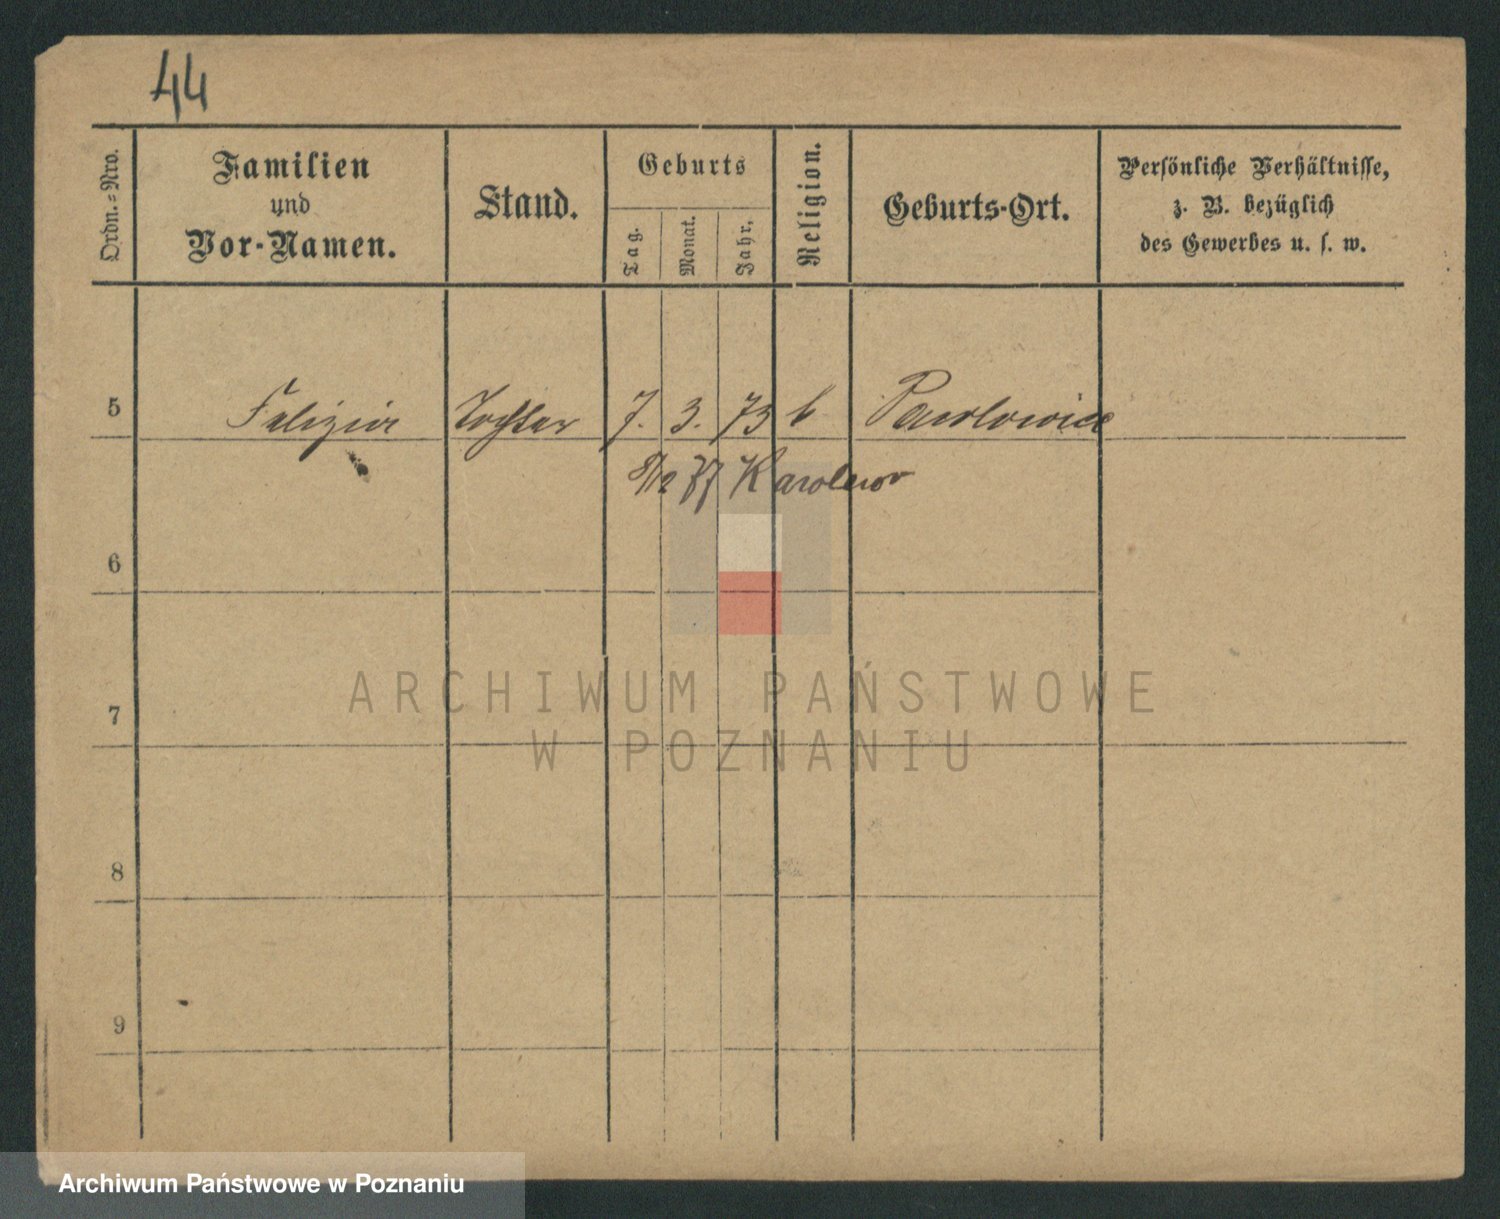 44
Ordn.-Nro.
Familien
und
Vor-Namen.
Stand.
Geburts
Tag.
Monat.
Jahr.
Religion.
Geburts-Ort.
Persönliche Verhältnisse,
z. B. bezüglich
des Gewerbes u. s. w.
5 Felizia Tochter 7. 3. 73 Pawlowice
8/12 77 Karolew
6
7
8
9
ARCHIWUM PAŃSTWOWE
W POZNANIU
Archiwum Państwowe w Poznaniu